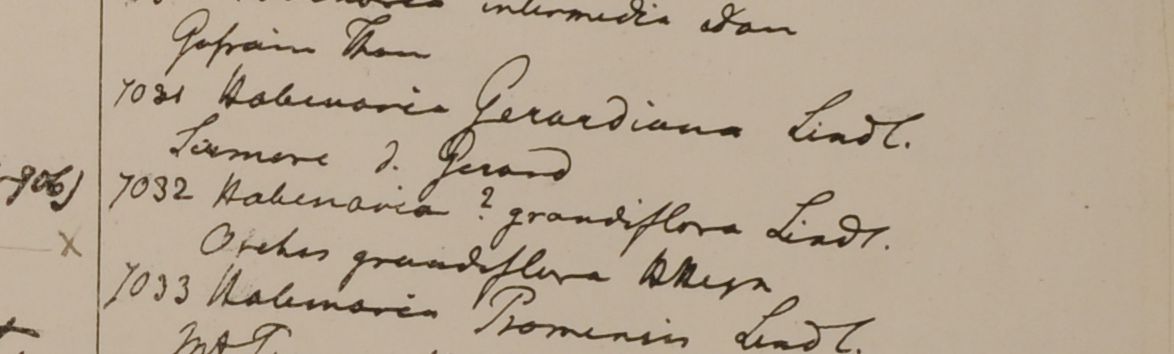 intermedia Don
Gosain Than
7031 Habenaria Gerardiana Lindl.
Sirmore d. Gerard
-906)
7032 Habenaria ? grandiflora Lindl.
X
Orchis grandiflora
7033 Habenaria Promensis Lindl.